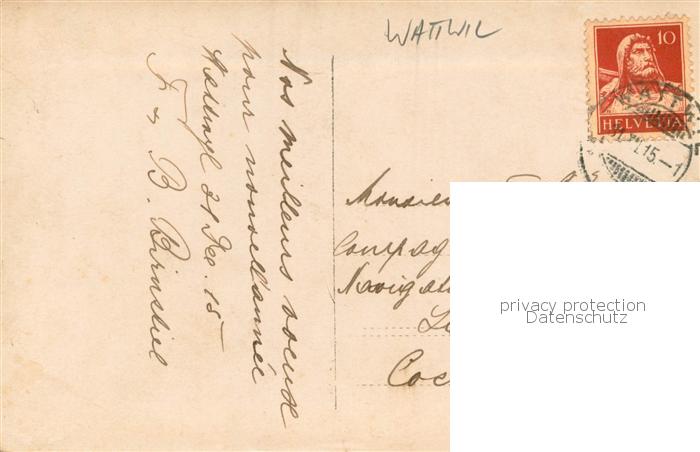 WATTWIL
10
HELVETIA
15.–1
Nos meilleurs voeux
pour nouvelle année
Wattwyl 31 Dec. 15
F & B. Birnstiel
Monsieu
Compag
Naviga
privacy protection
Datenschutz